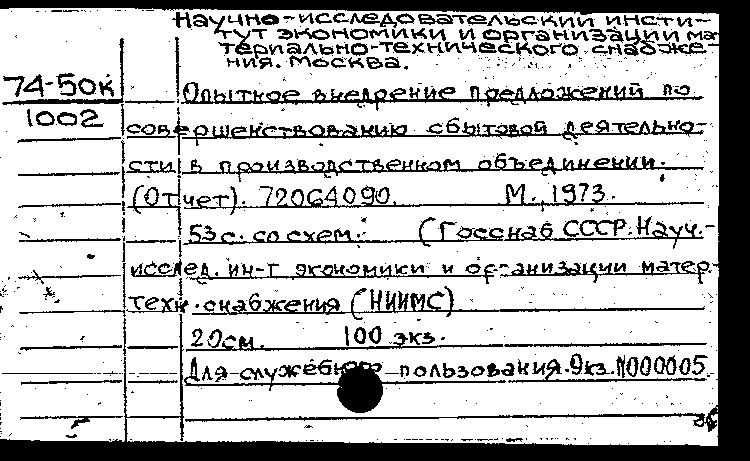 Научно-исследовательский инсти-
тут экономики и организации ма-
териально-технического снабже-
ния. Москва.
74-50к
1002
Опытное внедрение предложений по
совершенствованию сбытовой деятельно-
сти в производственном объединении.
(Отчет). 72064090. М., 1973.
53с. со схем. (Госснаб СССР. Науч.-
исслед. ин-т экономики и организации матер.-
техн. снабжения (НИИМС)
20см. 100 экз.
Для служебного пользования. Экз. N000005